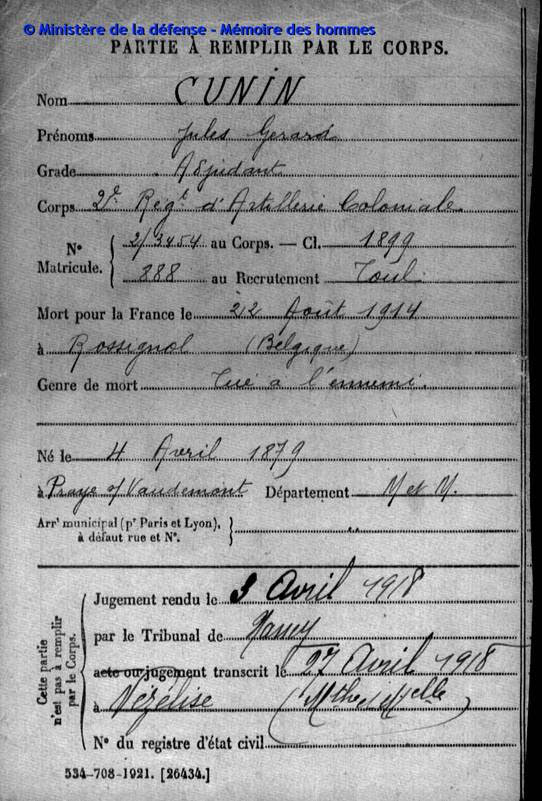 © Ministère de la défense - Mémoire des hommes
PARTIE À REMPLIR PAR LE CORPS.
Nom CUNIN
Prénoms Jules Gerard
Grade Adjudant
Corps 2e Regt d'Artillerie Coloniale
N° Matricule. { 2/3454 au Corps. — Cl. 1899
888 au Recrutement Toul
Mort pour la France le 22 Août 1914
à Rossignol (Belgique)
Genre de mort Tué a l'ennemi.
Né le 4 Avril 1879
à Praye s/ Vaudemont Département M et M.
Arr' municipal (pr Paris et Lyon), à défaut rue et N°. }
Cette partie n'est pas à remplir par le Corps.
Jugement rendu le 3 Avril 1918
par le Tribunal de Nancy
acte ou jugement transcrit le 27 Avril 1918
à Vézelise (Mthe & Mselle)
N° du registre d'état civil
534-708-1921. [26434.]